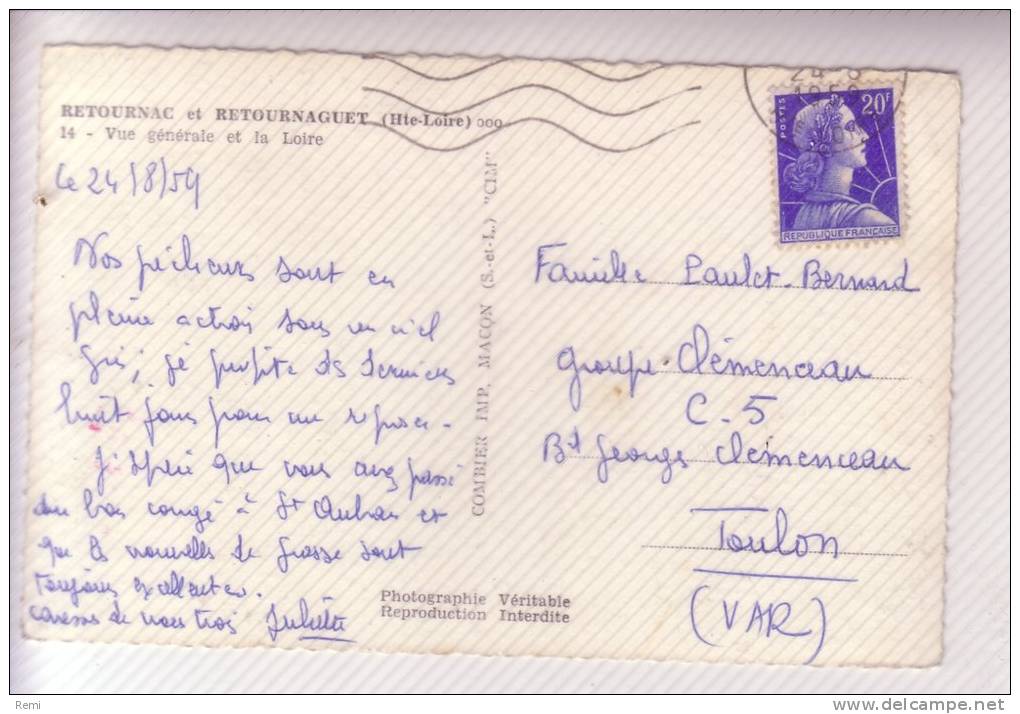 RETOURNAC et RETOURNAGUET (Hte-Loire) ooo
14 - Vue générale et la Loire
Le 24/8/59
Nos pêcheurs sont en
pleine action sous un ciel
gris, je profite des derniers
huit jours pour me reposer.
J'espère que vous avez passé
un bon congé à St Auban et
que les nouvelles de Grasse sont
toujours excellentes.
de nous trois Juliette
COMBIER IMP. MACON (S.-et-L.) "CIM"
Photographie Véritable
Reproduction Interdite
24-8
1959
POSTES
20F
REPUBLIQUE FRANÇAISE
Famille Paulet-Bernard
groupe Clémenceau
C-5
Bd Georges Clémenceau
Toulon
(VAR)
Remi
www.delcampe.net